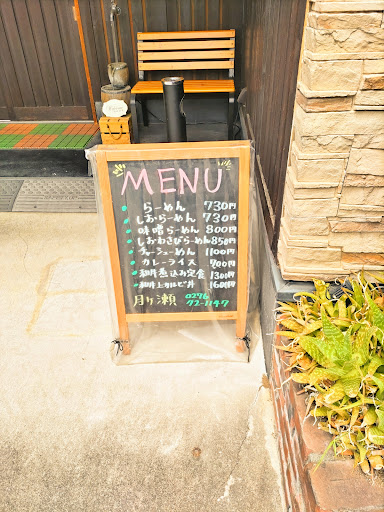 MENU
らーめん 730円
しおらーめん 730円
味噌らーめん 800円
しおわさびらーめん 850円
チャーシューめん 1100円
カレーライス 900円
和牛煮込み定食 1300円
和牛上カルビ丼 1600円
月ヶ瀬 0276
72-1147